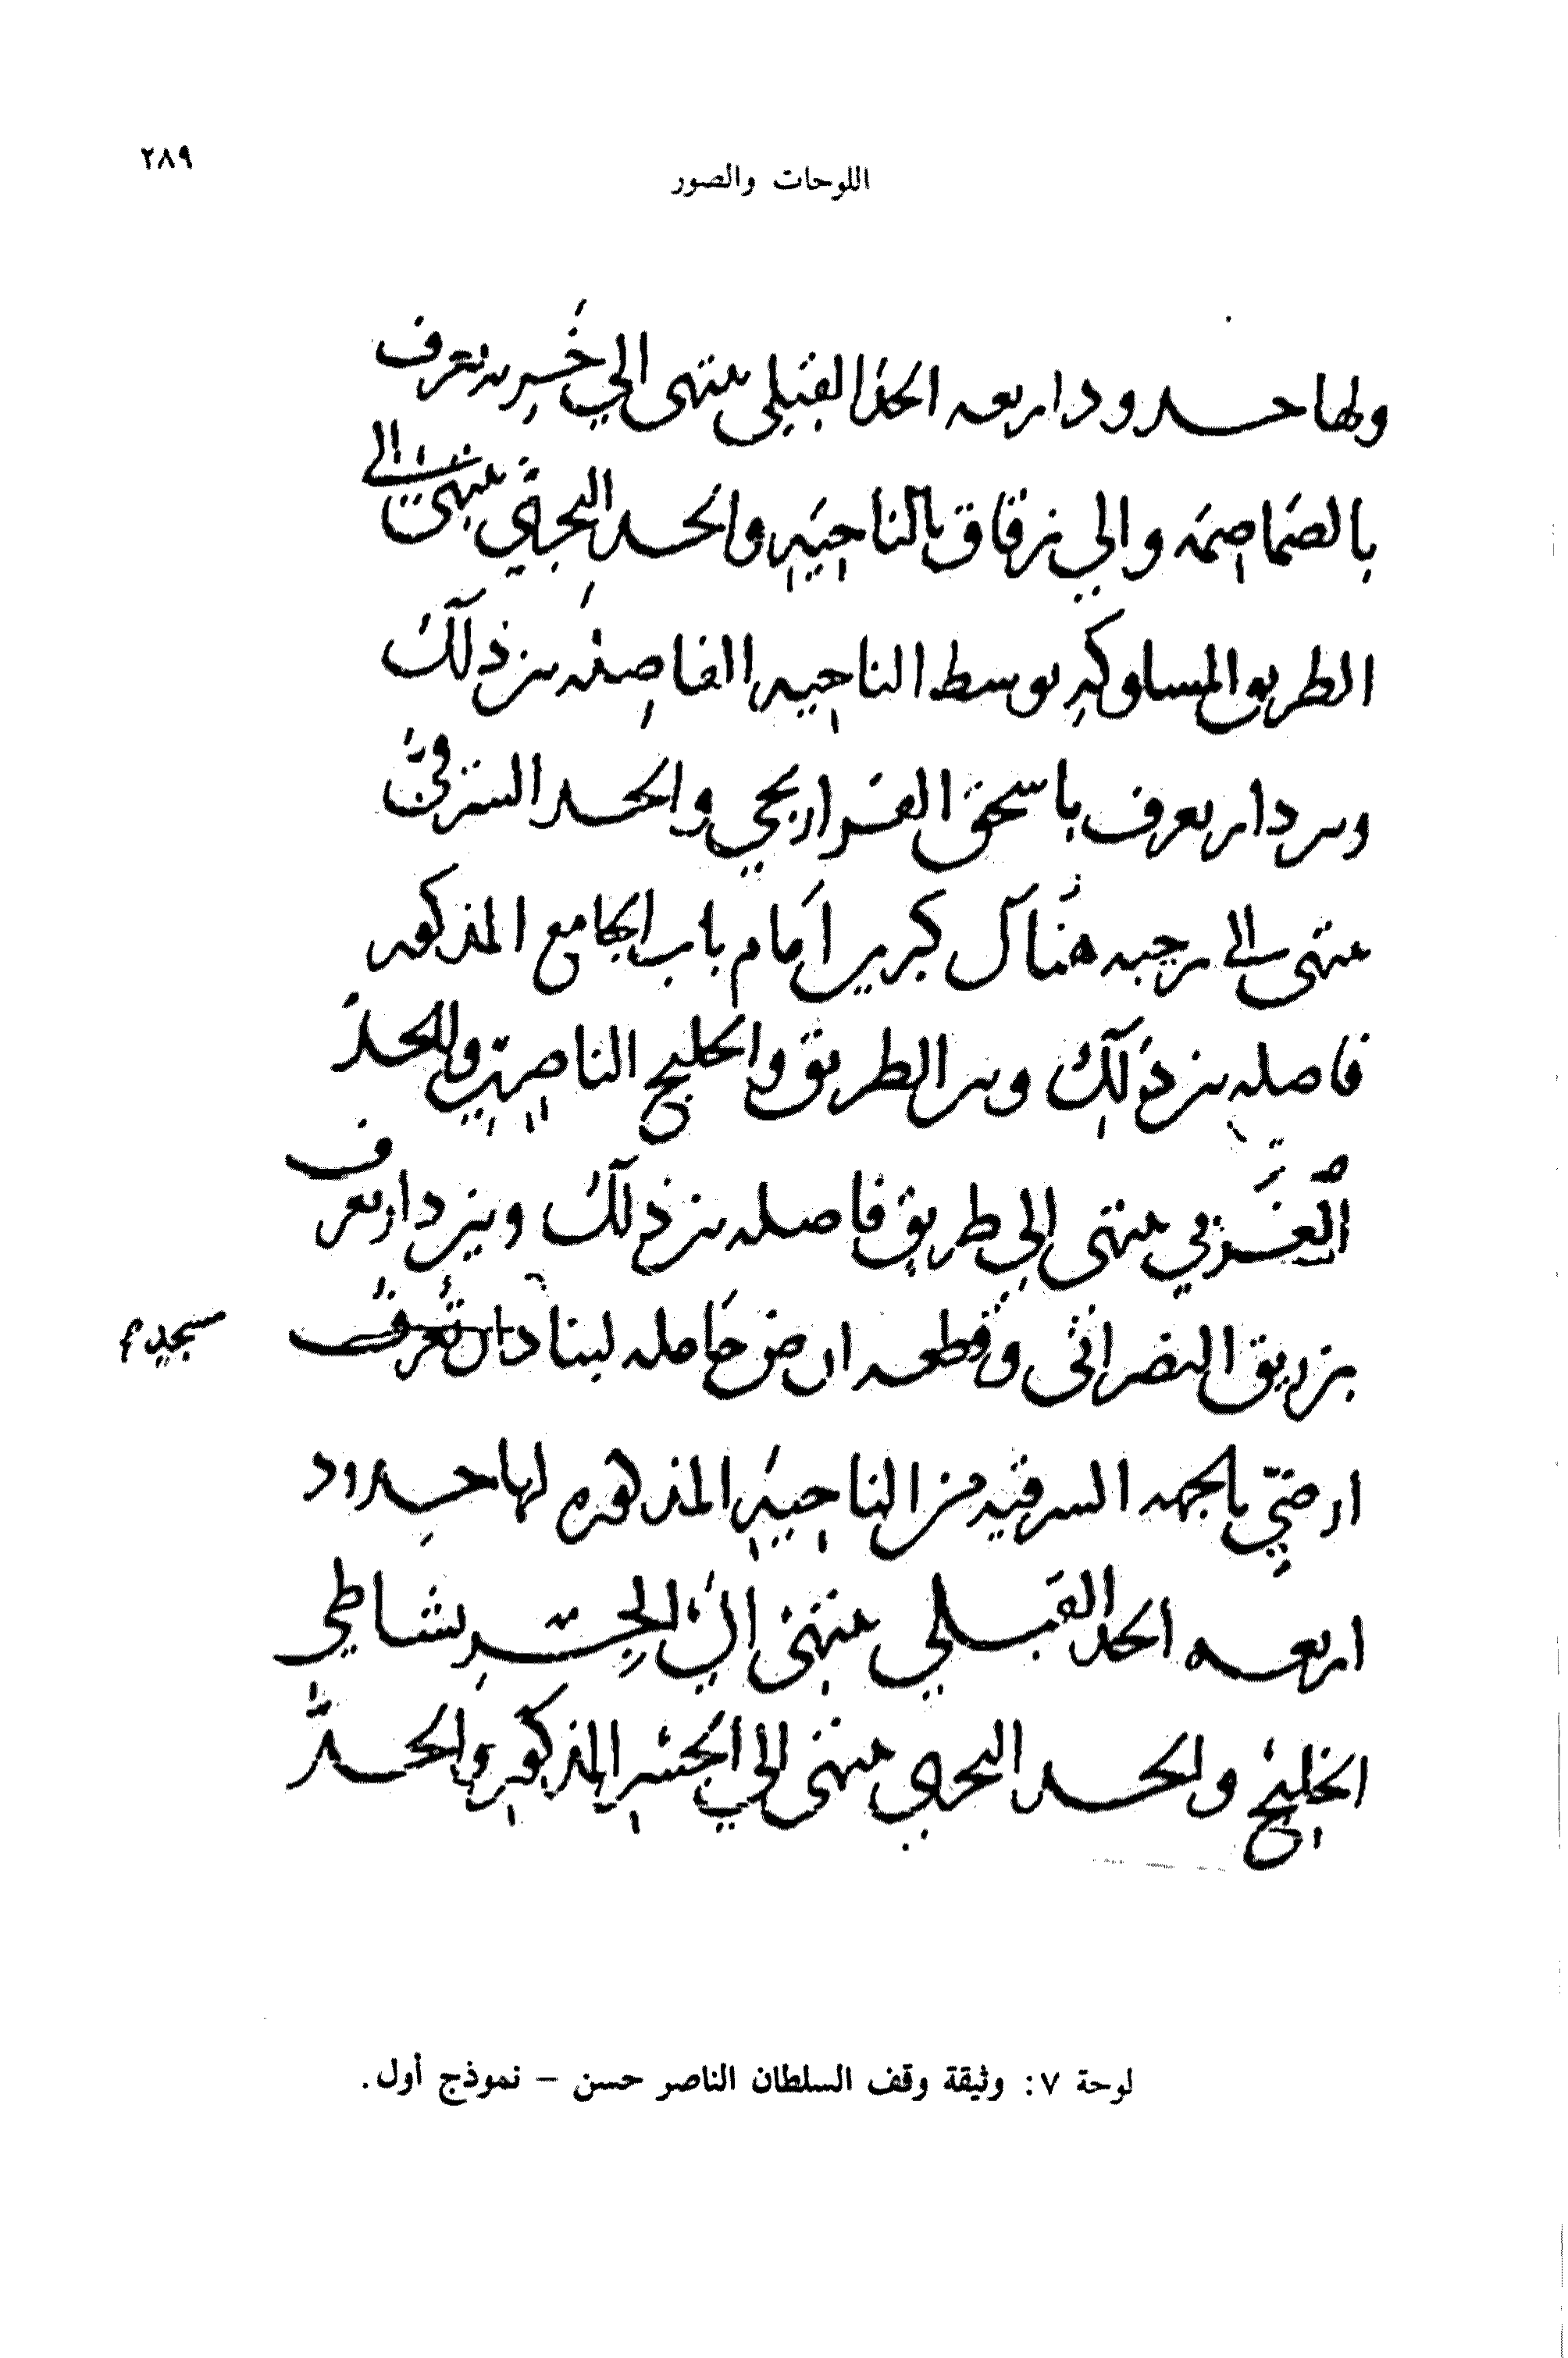 ٢٨٩
اللوحات والصور
ولها حدود اربعه الحد القبلي ينتهى الي خربه تعرف
بالصماصمه والي زقاق بالناحيه والحد البحري ينتهى الى
الطريق المسلوكه بوسط الناحيه الفاصله بين ذلك
وبين دار تعرف باسحق الفراريجي والحد الشرقي
ينتهى الى رحبه هناك كبرى امام باب الجامع المذكور
فاصله بين ذلك وبين الطريق والخليج الناصري والحد
الغربي ينتهى الي طريق فاصله بين ذلك وبين دار تعرف
بزريق النصراني وقطعه ارض حامله لبنا دار تعرف
مسجديم
ارضي بالجهه الشرقيه من الناحيه المذكوره لها حدود
اربعه الحد القبلي ينتهى الي الجسر بشاطي
الخليج والحد البحري ينتهى الي الجسر المذكور والحد
لوحة ٧: وثيقة وقف السلطان الناصر حسن – نموذج أول.